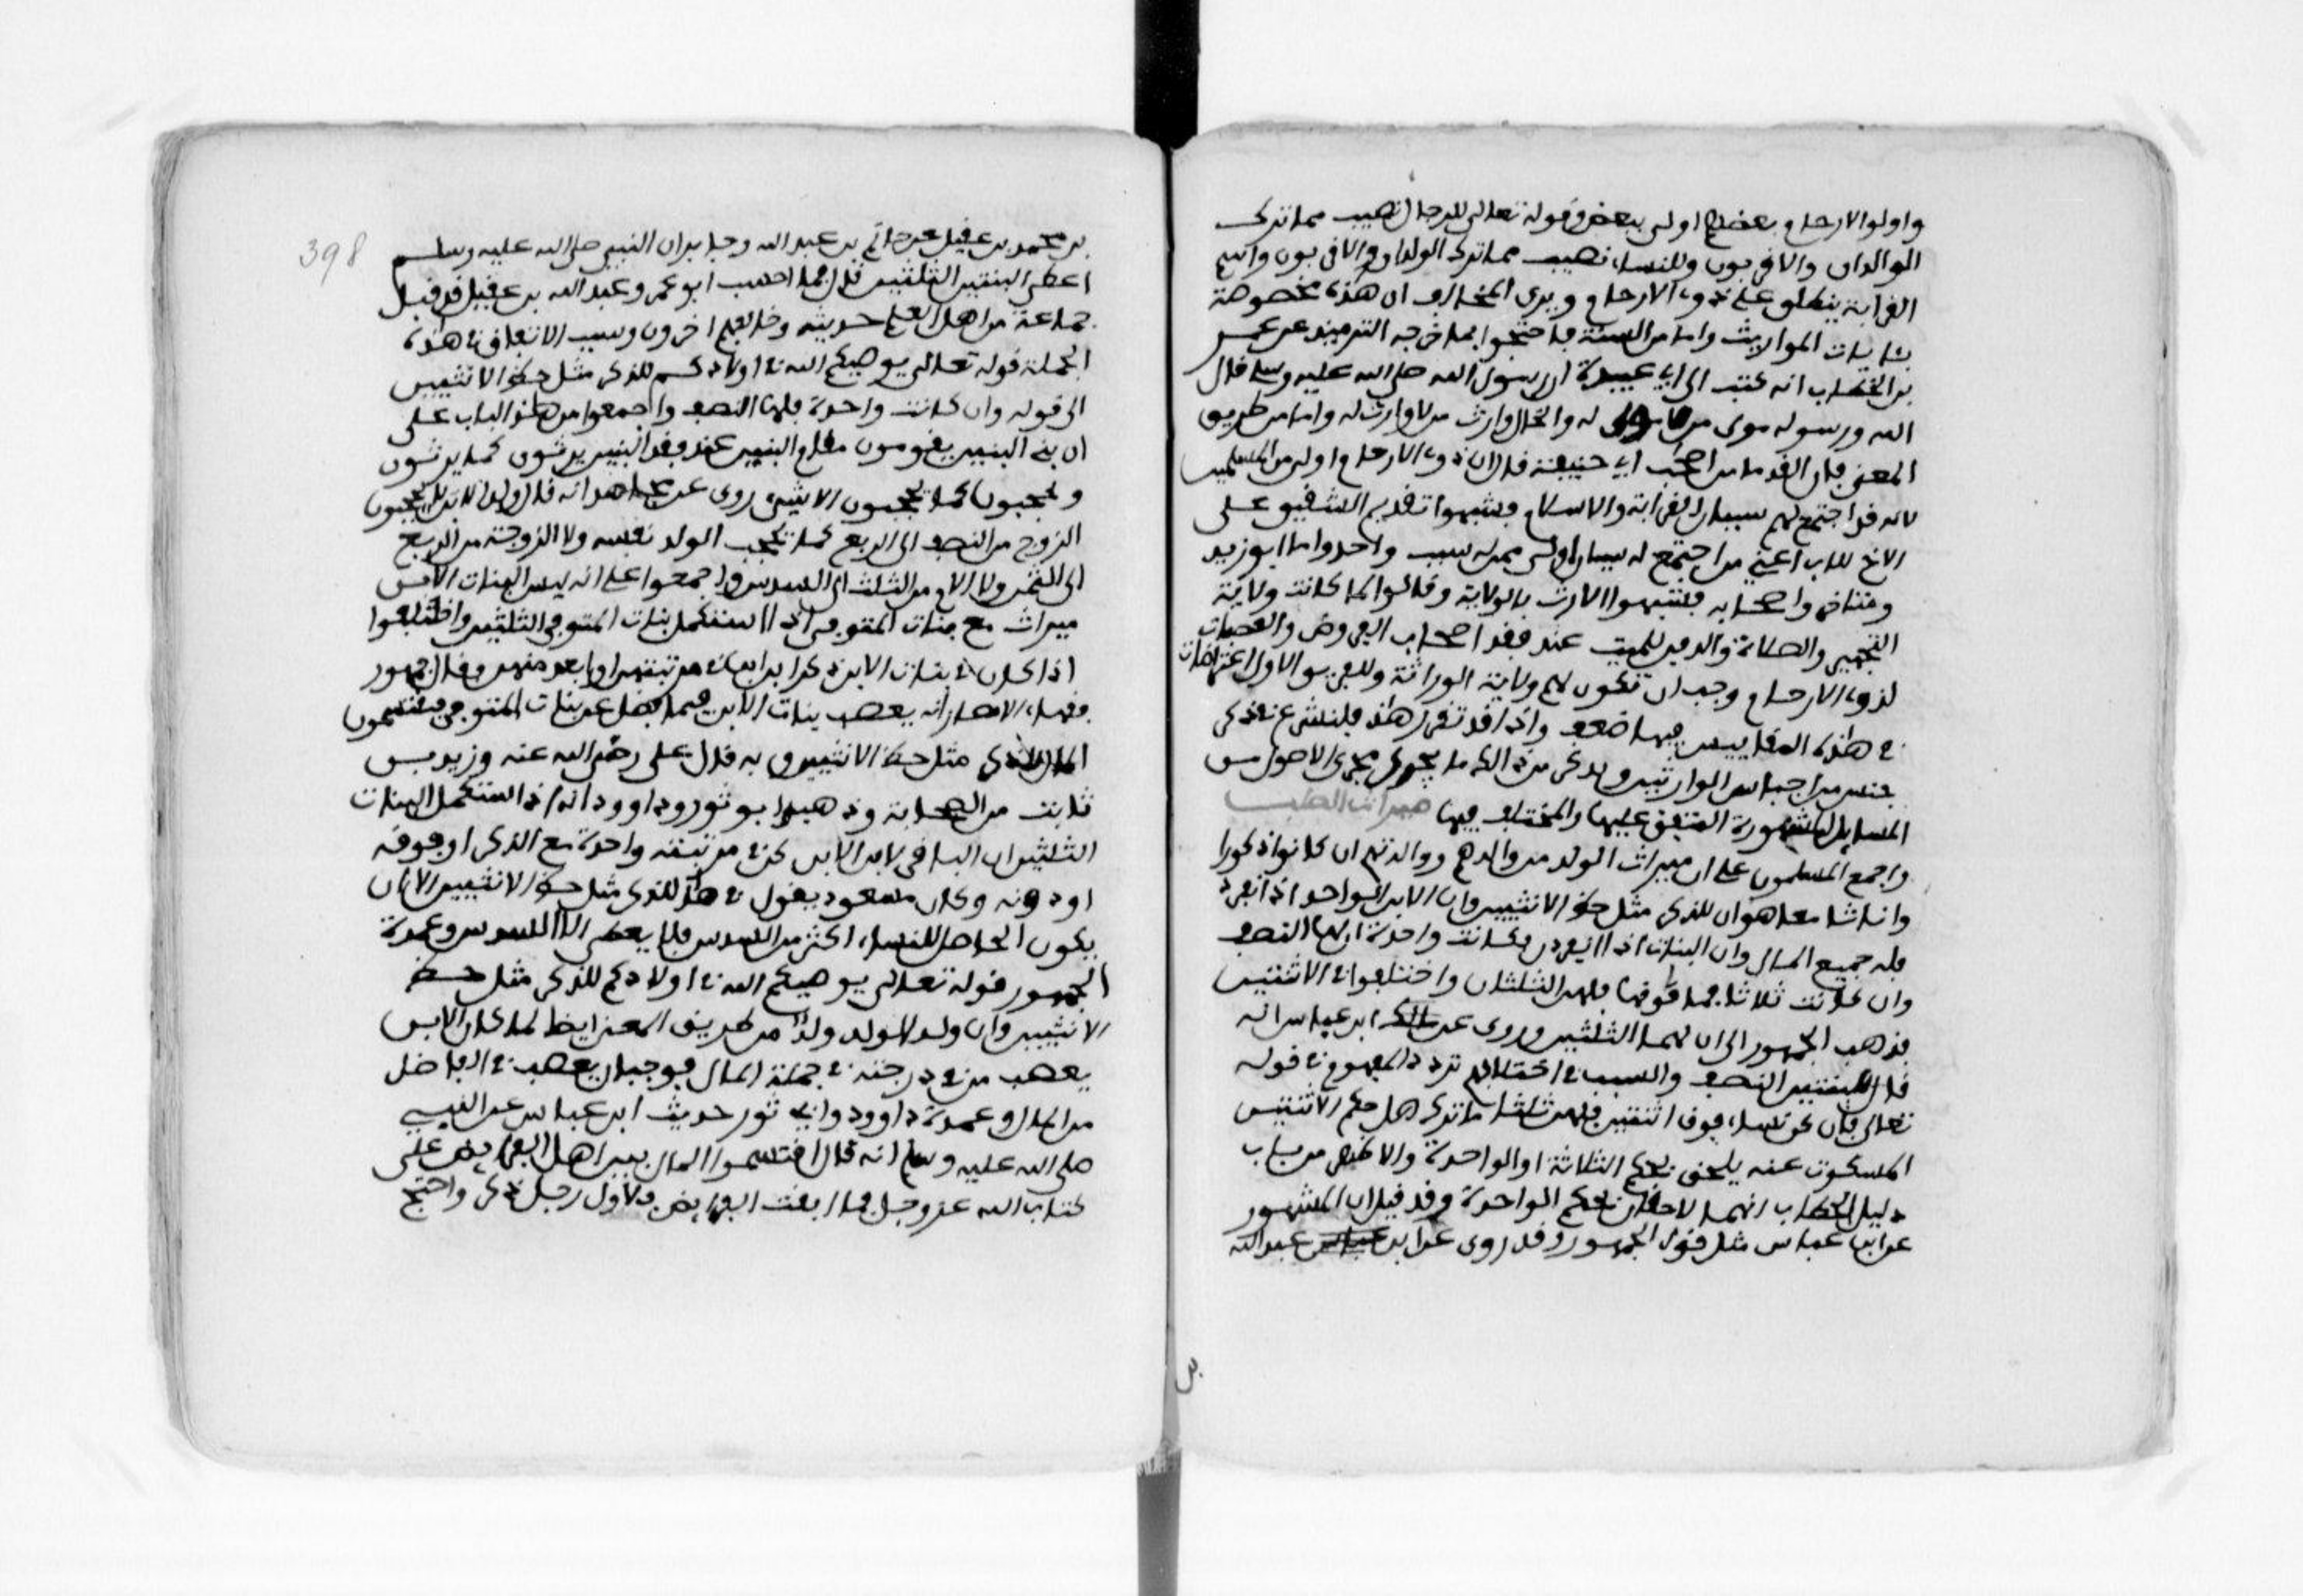 واولوا الارحام بعضهم اولى ببعض وقوله تعالى للرجال نصيب مما ترك
الوالدان والاقربون وللنساء نصيب مما ترك الولدان والاقربون واسم
القرابة ينطلق على ذوي الارحام ويرى المخالف ان هذه مخصوصة
بئايات المواريث واما من السنة فاحتجوا بما خرجه الترميذي عن عمر
بن الخطاب انه كتب الى ابي عبيدة ان رسول الله صلى الله عليه وسلم قال
الله ورسوله مولى من لا مولى له والخال وارث من لا وارث له واما من طريق
المعنى فان القدما من اصحب ابي حنيفة قالوا ان ذوي الارحام اولى من المسلمين
لانه قد اجتمع لهم سببان القرابة والاسلام فشبهوا تقديم الشقيق على
الاخ للاب اعني من اجتمع له سببان اولى ممن له سبب واحد واما ابوزيد
ومتاخروا صحابه فشبهوا الارث بالولاية وقالوا لما كانت ولاية
التجهيز والصلاة والدفن للميت عند فقد اصحاب الفروض والعصبات
لذوي الارحام وجب ان تكون لهم ولاية الوراثة وللفريق الاول اعتراضات
في هذه المقاييس فيها ضعف واذا قد تقرر هذا فلنشرع في ذكر
جنس من اجناس الوارثين ونذكر من ذالك ما يجري مجرى الاصول من
المسايل المشهورة المتفق عليها والمختلف فيها ميراث الصلب
واجمع المسلمون على ان ميراث الولد من والدهم ووالدتهم ان كانوا ذكورا
واناثا معا هو ان للذكر مثل حظ الانثيين وان الابن الواحد اذا انفرد
فله جميع المال وان البنات اذا انفردن فكانت واحدة ان لها النصف
وان كانت ثلاثا فما فوقها فلهن الثلثان واختلفوا في الاثنتين
فذهب الجمهور الى ان لهما الثلثين وروى عن ابن عباس انه
قال للبنتين النصف والسبب في اختلافهم تردد المفهوم في قوله
تعالى فان كن نساء فوق اثنتين فلهن ثلثا ما ترك هل حكم الاثنتين
المسكوت عنه يلحق بحكم الثلاثة او الواحدة والاظهر من باب
دليل الخطاب انهما لاحقان بحكم الواحدة وقد قيل ان المشهور
عن ابن عباس مثل قول الجمهور وقد روى عن ابن عباس عبد الله
بن
398
بن محمد بن عقيل عن حاتم بن عبد الله وجابر ان النبي صلى الله عليه وسلم
اعطى البنتين الثلثين قال فيما احسب ابو عمر وعبد الله بن عقيل قد قبل
جماعة من اهل العلم حديثه وخالفهم اخرون وسبب الاتفاق في هذه
الجملة قوله تعالى يوصيكم الله في اولادكم للذكر مثل حظ الانثيين
الى قوله وان كانت واحدة فلها النصف واجمعوا من هذا الباب على
ان بني البنين يقومون مقام البنين عند فقد البنين يرثون كما يرثون
ويحجبون كما يحجبون الا شيء روى عن مجاهد انه قال ولد الابن لا يحجبون
الزوج من النصف الى الربع كما يحجب الولد نفسه ولا الزوجة من الربع
الى الثمن ولا الام من الثلث الى السدس واجمعوا على انه ليس لبنات الابن
ميراث مع بنات المتوفى اذا استكمل بنات المتوفى الثلثين واختلفوا
اذا كان في بنات الابن ذكر ابن ابن في مرتبتهن او ابعد منهن فقال جمهور
فقهاء الامصار انه يعصب بنات الابن فيما فضل عن بنات المتوفى فيقتسمون
المال للذكر مثل حظ الانثيين وبه قال على رضي الله عنه وزيد بن
ثابت من الصحابة وذهب ابو ثور وداوود انه اذا استكمل البنات
الثلثين ان الباقي لابن الابن كن في مرتبته واحدة مع الذكر او فوقه
او دونه وكان مسعود يقول في هذا للذكر مثل حظ الانثيين الا ان
يكون الحاصل للنساء اكثر من السدس فلا يعطى الا السدس وعمدة
الجمهور قوله تعالى يوصيكم الله في اولادكم للذكر مثل حظ
الانثيين وان ولد الولد ولد من طريق المعنى ايضا لما كان الابن
يعصب من في درجته في جملة المال فوجب ان يعصب في الفاضل
من المال وعمدة داوود وابي ثور حديث ابن عباس عن النبي
صلى الله عليه وسلم انه قال اقتسموا المال بين اهل الفرايض على
كتاب الله عز وجل فما ابقت الفرايض فلاول رجل ذكر واحتج